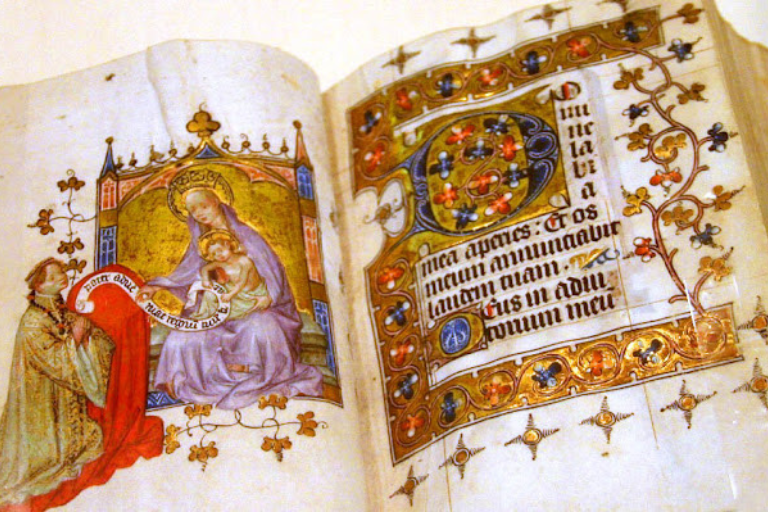 adue
niat
DO
mi
ne
la
bi
a
mea aperies : Et os
meum annunciabit
laudem tuam .
Deus in adiu
torium meu